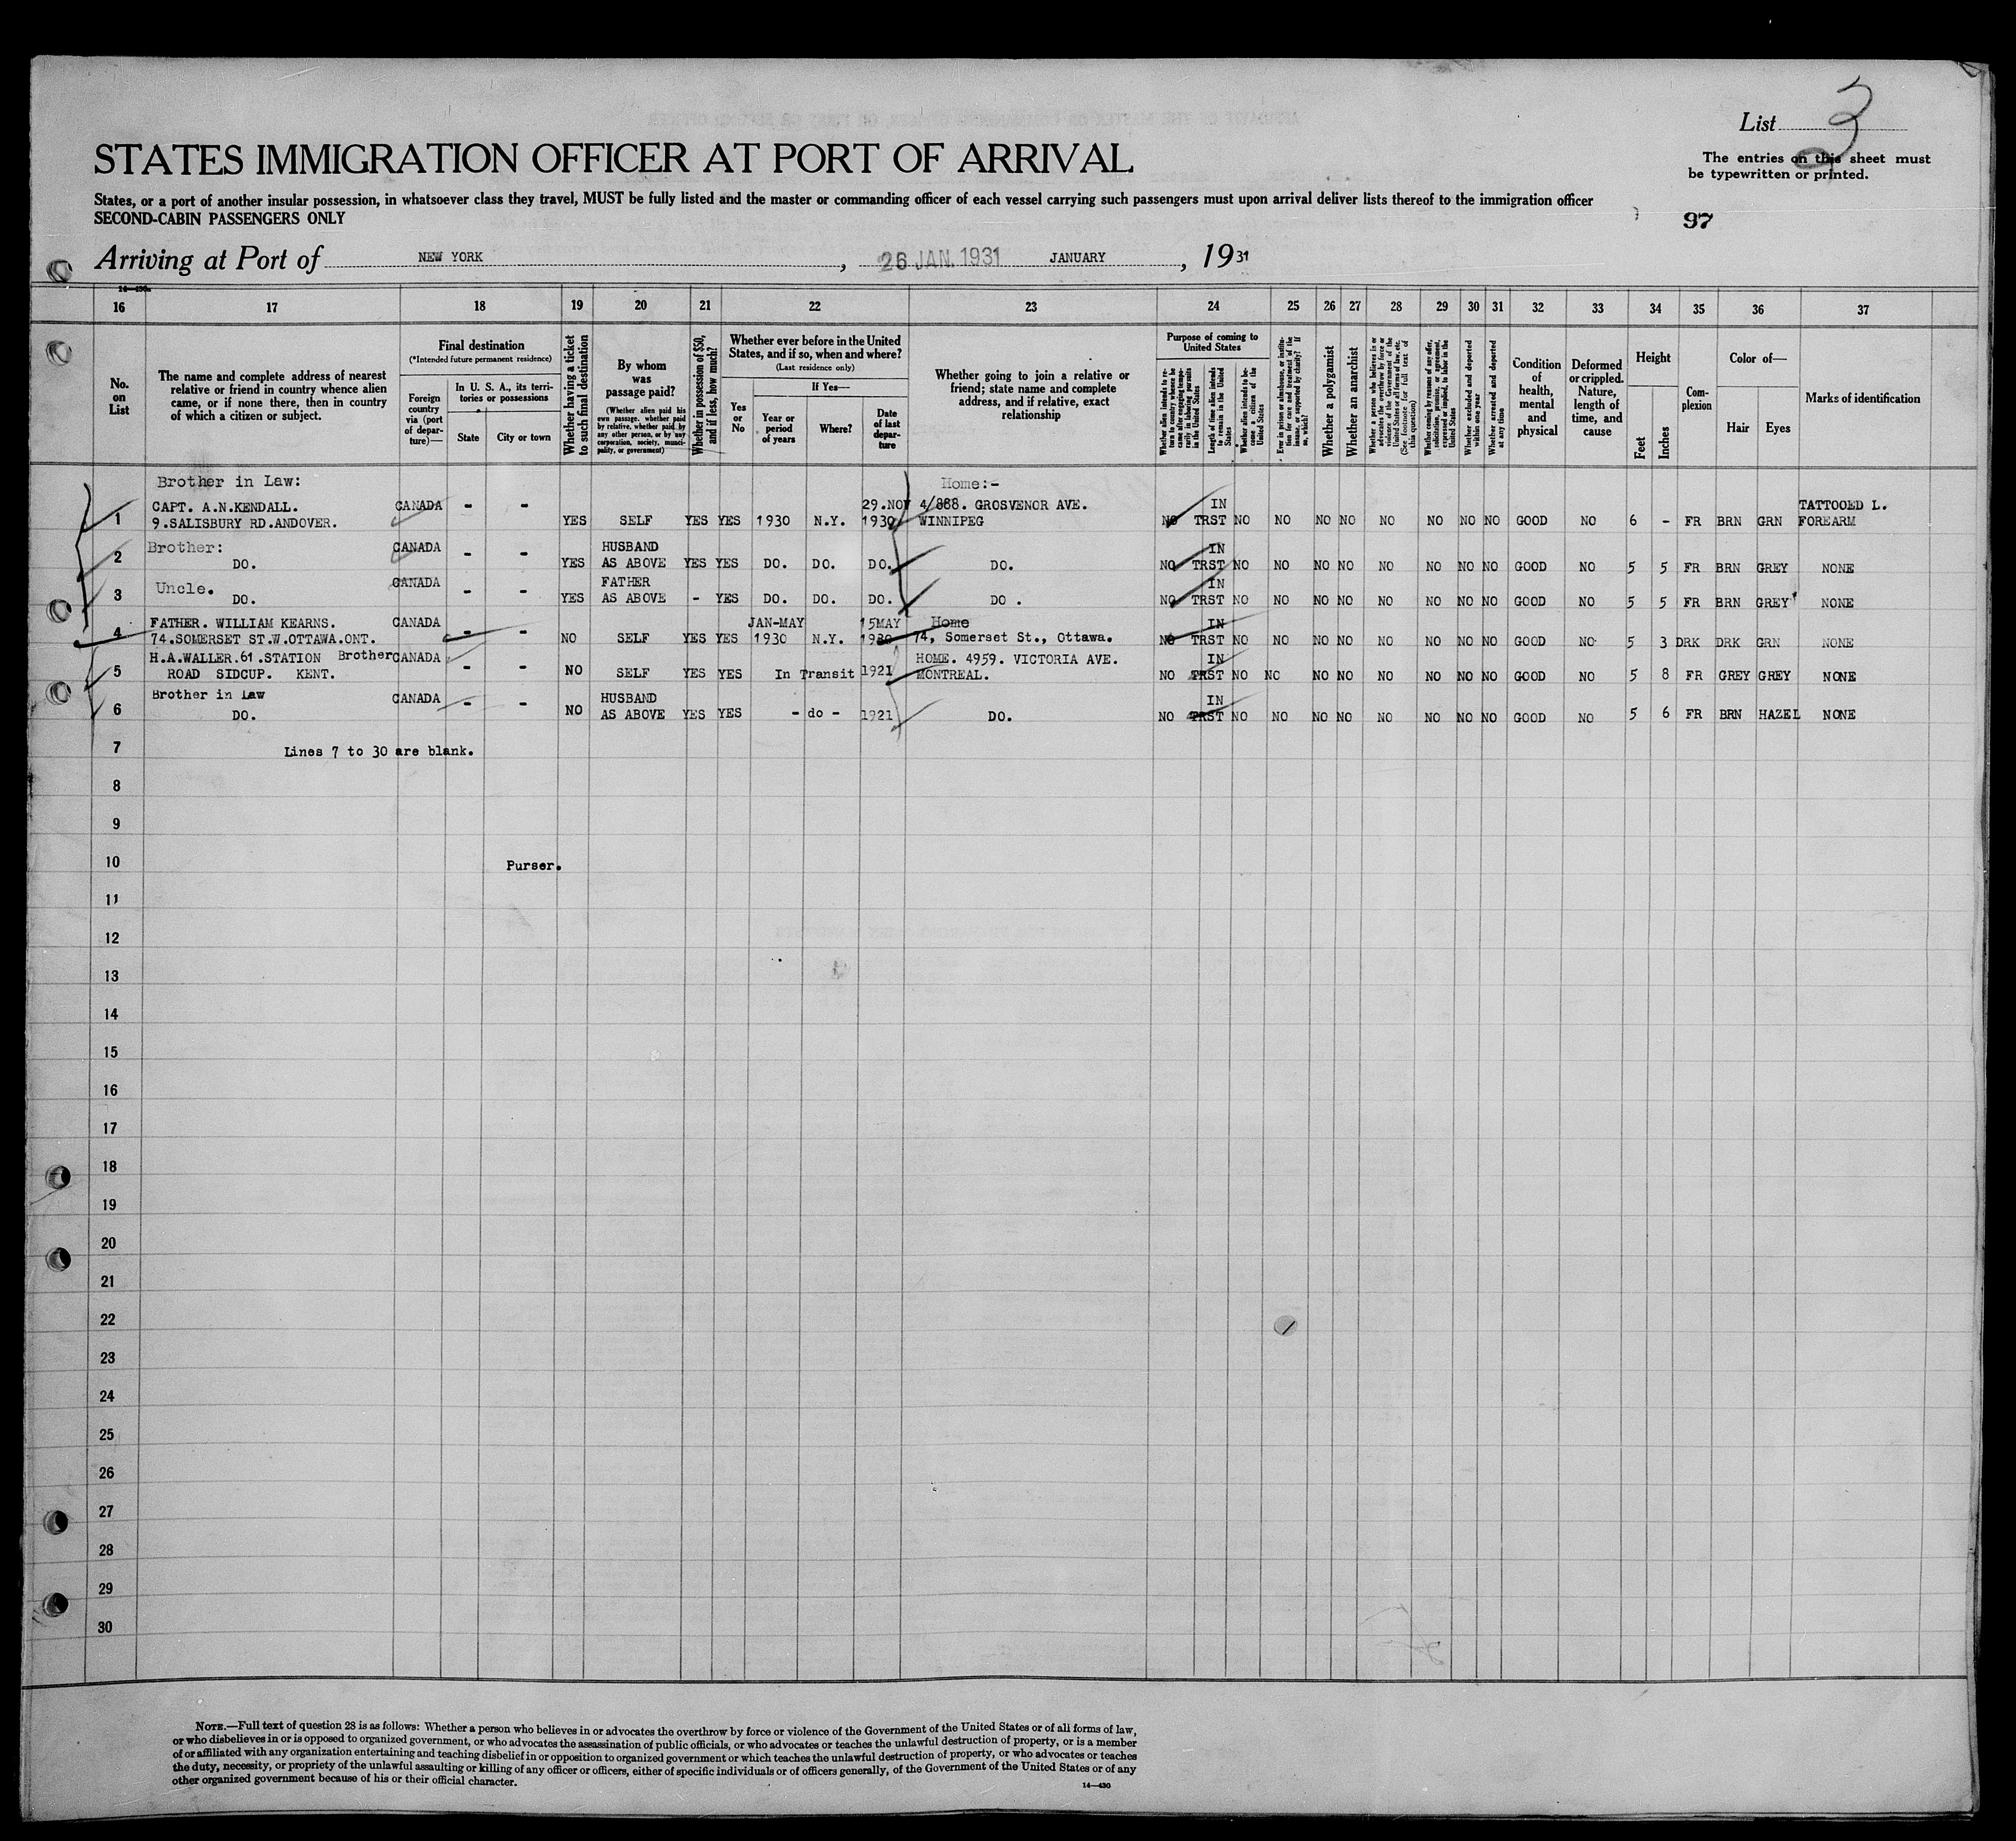 List 3
The entries on this sheet must
be typewritten or printed.
STATES IMMIGRATION OFFICER AT PORT OF ARRIVAL
States, or a port of another insular possession, in whatsoever class they travel, MUST be fully listed and the master or commanding officer of each vessel carrying such passengers must upon arrival deliver lists thereof to the immigration officer
SECOND-CABIN PASSENGERS ONLY
97
Arriving at Port of NEW YORK, 26 JAN. 1931 JANUARY, 1931
14—430
16 17 18 19 20 21 22 23 24 25 26 27 28 29 30 31 32 33 34 35 36 37
No. on List
The name and complete address of nearest relative or friend in country whence alien came, or if none there, then in country of which a citizen or subject.
Final destination
(*Intended future permanent residence)
Foreign country via (port of departure)—
In U. S. A., its territories or possessions
State
City or town
Whether having a ticket to such final destination
By whom was passage paid?
(Whether alien paid his own passage, whether paid by relative, whether paid by any other person, or by any corporation, society, municipality, or government)
Whether in possession of $50, and if less, how much?
Whether ever before in the United States, and if so, when and where?
(Last residence only)
Yes or No
If Yes—
Year or period of years
Where?
Date of last departure
Whether going to join a relative or friend; state name and complete address, and if relative, exact relationship
Purpose of coming to United States
Whether alien intends to return to country whence he came after engaging temporarily in laboring pursuits in the United States
Length of time alien intends to remain in the United States
Whether alien intends to become a citizen of the United States
Ever in prison or almshouse, or institution for care and treatment of the insane, or supported by charity? If so, which?
Whether a polygamist
Whether an anarchist
Whether a person who believes in or advocates the overthrow by force or violence of the Government of the United States or all forms of law, etc. (See footnote for full text of this question)
Whether coming by reason of any offer, solicitation, promise, or agreement, expressed or implied, to labor in the United States
Whether excluded and deported within one year
Whether arrested and deported at any time
Condition of health, mental and physical
Deformed or crippled. Nature, length of time, and cause
Height
Feet
Inches
Complexion
Color of—
Hair
Eyes
Marks of identification
Brother in Law: Home:-
CAPT. A.N.KENDALL. CANADA - - 29.NOV 4/888. GROSVENOR AVE. IN TATTOOED L.
1 9.SALISBURY RD.ANDOVER. YES SELF YES YES 1930 N.Y. 1930 WINNIPEG NO TRST NO NO NO NO NO NO NO NO GOOD NO 6 - FR BRN GRN FOREARM
Brother: CANADA - - HUSBAND IN
2 DO. YES AS ABOVE YES YES DO. DO. DO. DO. NO TRST NO NO NO NO NO NO NO NO GOOD NO 5 5 FR BRN GREY NONE
Uncle. CANADA - - FATHER IN
3 DO. YES AS ABOVE - YES DO. DO. DO. DO . NO TRST NO NO NO NO NO NO NO NO GOOD NO 5 5 FR BRN GREY NONE
FATHER. WILLIAM KEARNS. CANADA - - JAN-MAY 15MAY Home IN
4 74.SOMERSET ST.W.OTTAWA.ONT. NO SELF YES YES 1930 N.Y. 1930 74, Somerset St., Ottawa. NO TRST NO NO NO NO NO NO NO NO GOOD NO 5 3 DRK DRK GRN NONE
H.A.WALLER.61.STATION Brother CANADA - - HOME. 4959. VICTORIA AVE. IN
5 ROAD SIDCUP. KENT. NO SELF YES YES In Transit 1921 MONTREAL. NO TRST NO NO NO NO NO NO NO NO GOOD NO 5 8 FR GREY GREY NONE
Brother in Law CANADA - - HUSBAND IN
6 DO. NO AS ABOVE YES YES - do - 1921 DO. NO TRST NO NO NO NO NO NO NO NO GOOD NO 5 6 FR BRN HAZEL NONE
7 Lines 7 to 30 are blank.
8
9
10 Purser.
11
12
13
14
15
16
17
18
19
20
21
22
23
24
25
26
27
28
29
30
NOTE.—Full text of question 28 is as follows: Whether a person who believes in or advocates the overthrow by force or violence of the Government of the United States or of all forms of law,
or who disbelieves in or is opposed to organized government, or who advocates the assassination of public officials, or who advocates or teaches the unlawful destruction of property, or is a member
of or affiliated with any organization entertaining and teaching disbelief in or opposition to organized government or which teaches the unlawful destruction of property, or who advocates or teaches
the duty, necessity, or propriety of the unlawful assaulting or killing of any officer or officers, either of specific individuals or of officers generally, of the Government of the United States or of any
other organized government because of his or their official character.
14—430